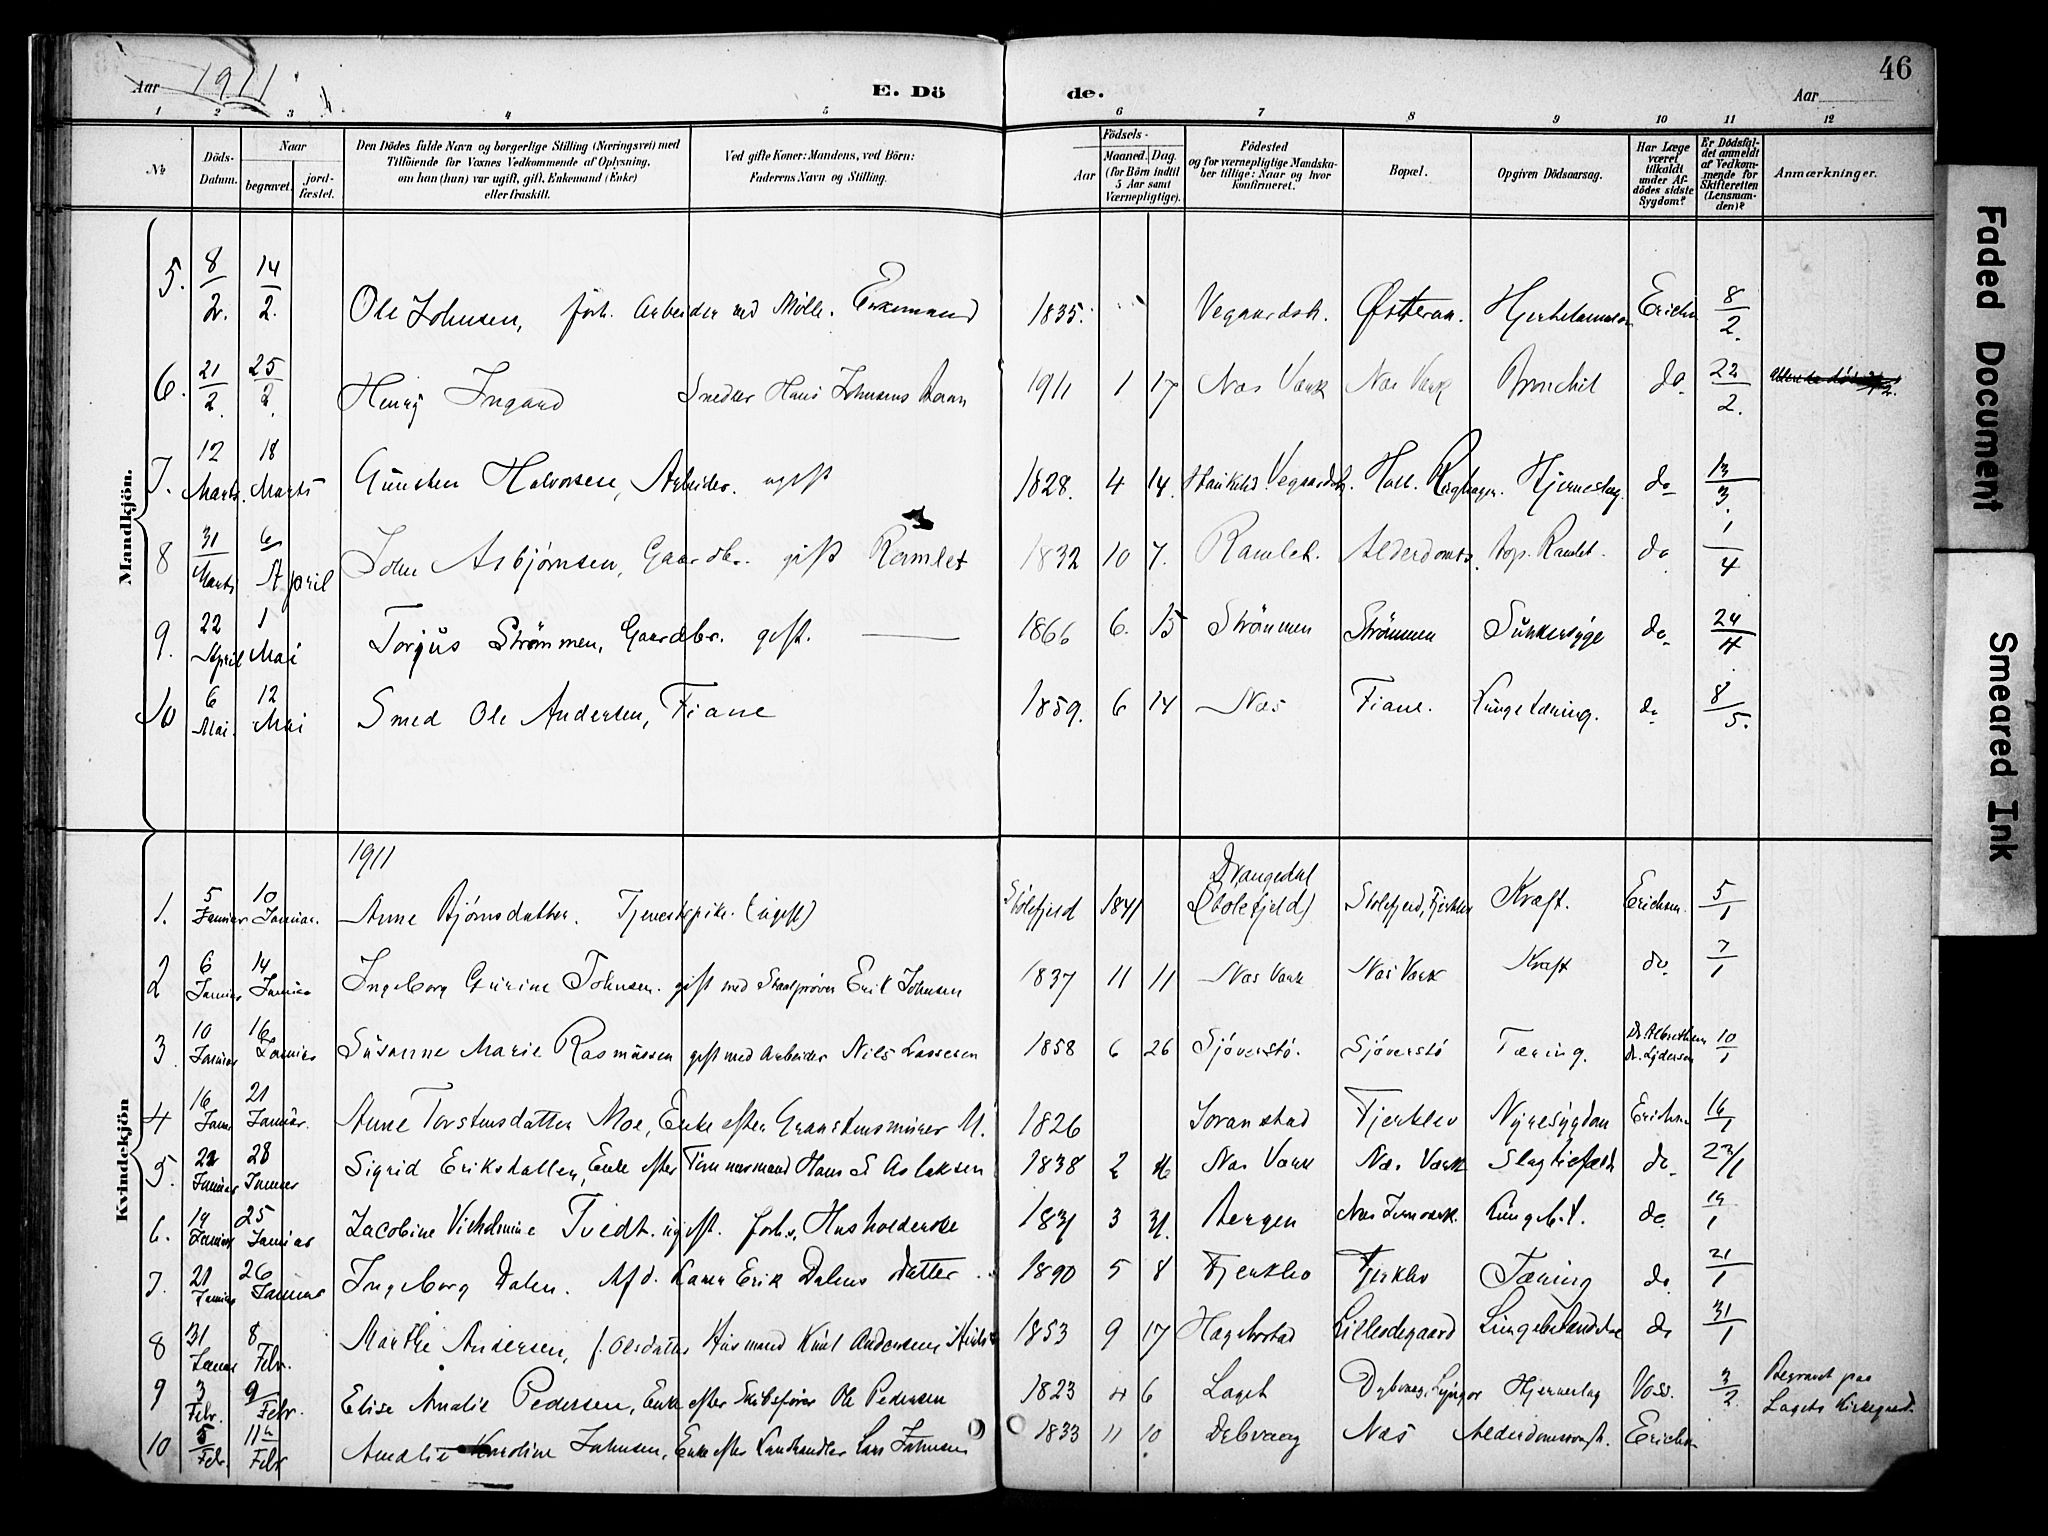 46
Aar 1911
E. Dö de.
Aar
1 2 3 4 5 6 7 8 9 10 11 12
No.
Döds-Datum.
Naar
begravet. jord-fæstet.
Den Dödes fulde Navn og borgerlige Stilling (Næringsvei) med
Tilföiende for Voxnes Vedkommende af Oplysning,
om han (hun) var ugift, gift, Enkemand (Enke)
eller fraskilt.
Ved gifte Koner: Mandens, ved Börn:
Faderens Navn og Stilling.
Födsels-
Aar
Maaned. Dag.
(for Börn indtil
5 Aar samt
Værnepligtige).
Födested
og for værnepligtige Mandska-
ber tillige: Naar og hvor
konfirmeret.
Bopæl.
Opgiven Dödsaarsag.
Har Læge
været
tilkaldt
under Af-
dödes sidste
Sygdom?
Er Dödsfal-
det anmeldt
af Vedkom-
mende for
Skifteretten
(Lensman-
den)?
Anmærkninger.
Mandkjön.
5. 8/2. 14/2. Ole Johnsen, forh. Arbeider ved Mölle. Enkemand 1835. Vegaardsh. Østeraa. 8/2.
6. 21/2. 25/2. Henry Ingard Smedlær Hans Johnsens 1911 1 17 Næs Værk Næs Værk Bronchit do. 22/2.
7. 12 Marts. 18 Marts Gunsten Halvorsen, Arbeider. ugift 1828. 4 14. Vegaardsh. Hjerneslag. do 13/3.
8 31 Marts 6 April John Asbjørnsen, Gaardbr. gift Ramlet 1832 10 7. Ramlet. do. 1/4
9. 22 April 1 Mai Torjus Strømmen, Gaardbr. gift. 1866 6. 15 Strømmen Strømmen Sukkersyge do. 24/4
10 6 Mai. 12 Mai Smed Ole Andersen, Fiane 1859. 6 14 Næs Fiane. Lungetæring. do 8/5.
Kvindekjön
1911
1. 5 Januar 10 Januar. Anne Bjørnsdatter. Tjenestepike. (ugift) Stolefjeld 1841 Drangedal (Stolefjeld) Stolefjeld, Fjerklev Kræft. Erichsen. 5/1
2 6 Januar 14 Januar Ingeborg Gurine Johnsen. gift med Staalprøver Erik Johnsen 1837 11 11 Næs Værk Næs Værk Kræft do. 7/1
3. 10 Januar 16 Januar Susanne Marie Rasmussen gift med Arbeider Nils Lassesen 1858 6 26 Sjøverstø. Sjøverstø Tæring. 10/1
4 16 Janr 21 Januar. Anne Torstensdatter Moe, Enke efter Graastensmurer M. 1826 Fjerklev Nyresygdom Erichsen 16/1
5. 22 Januar 28 Januar Sigrid Eriksdatter, Enke efter Tømmermand Hans S Aslaksen 1838 2 Næs Værk Næs Værk Slagtilfælde do. 23/1
6. 19 Januar 25 Januar Jacobine Vilhelmine Tvedt. ugift. forh. Husholderske 1831 3 31. Bergen Næs Jernværk. Lungebet. do. 19/1
7. 21 Januar 26 Januar Ingeborg Dalen. Afd. Erik Dalens Datter 1890 5 8 Fjerklev Fjerklev Tæring do. 21/1
8 31 Januar 8 Febr. Marthe Andersen, f. Olsdatter Husmand Knut Andersens Hustru 1853 9 17 Hagelvstad Lillesdegaard Lungebetændelse do 31/1
9 3 Febr. 9 Febr. Elise Amalie Pedersen, Enke efter Skibsfører Ole Pedersen 1823 4 6 Laget Dybvaag, Lyngør Hjerneslag Voss. 3/2. Begravet paa Lagets Kirkegaard.
10 5 Febr. 11 Febr Amalie Karoline Johnsen, Enke efter Landhandler Lars Johnsen 1833 11 10. Dybvaag Næs Alderdomssvagh. Erichsen
Faded Document
Smeared Ink